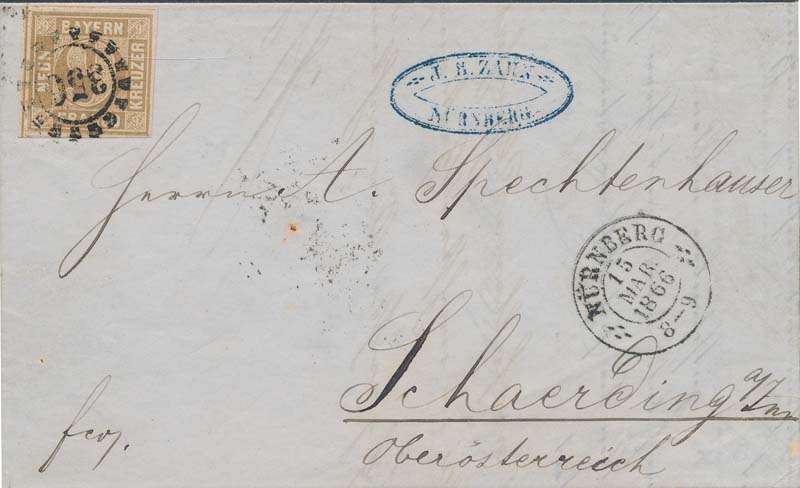 BAYERN
NEUN
KREUZER
356
J. B. ZAHN
NÜRNBERG.
Herrn A. Spechtenhauser
NÜRNBERG
15
MAR.
1866
8-9
Schaerding a/Inn
Oberösterreich
fco.